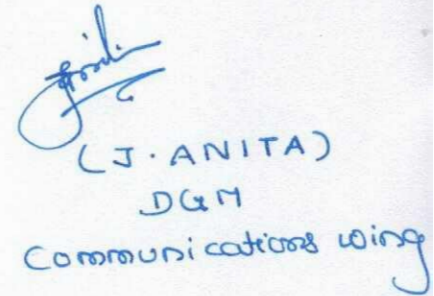 (J. ANITA)
DGM
Communications wing